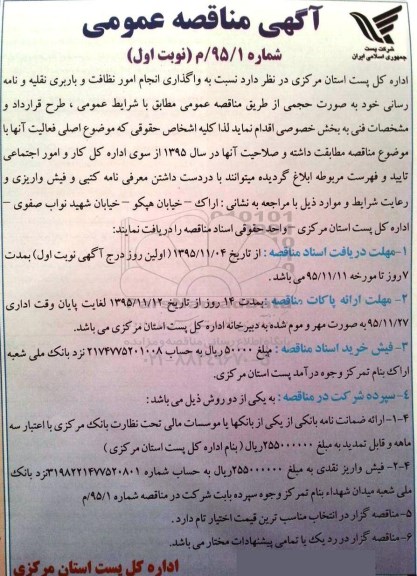 آگهی مناقصه عمومی
شماره ۹۵/۱/م (نوبت اول)
شرکت پست
جمهوری اسلامی ایران
اداره کل پست استان مرکزی در نظر دارد نسبت به واگذاری انجام امور نظافت و باربری نقلیه و نامه
رسانی خود به صورت حجمی از طریق مناقصه عمومی مطابق با شرایط عمومی ، طرح قرارداد و
مشخصات فنی به بخش خصوصی اقدام نماید لذا کلیه اشخاص حقوقی که موضوع اصلی فعالیت آنها با
موضوع مناقصه مطابقت داشته و صلاحیت آنها در سال ۱۳۹۵ از سوی اداره کل کار و امور اجتماعی
تایید و فهرست مربوطه ابلاغ گردیده میتوانند با دردست داشتن معرفی نامه کتبی و فیش واریزی و
رعایت شرایط و موارد ذیل با مراجعه به نشانی : اراک – خیابان هپکو – خیابان شهید نواب صفوی –
اداره کل پست استان مرکزی – واحد حقوقی اسناد مناقصه را دریافت نمایند:
۱-مهلت دریافت اسناد مناقصه : از تاریخ ۱۳۹۵/۱۱/۰۴ (اولین روز درج آگهی نوبت اول) بمدت
۷روز تا مورخه ۹۵/۱۱/۱۱ می باشد .
۲- مهلت ارائه پاکات مناقصه :بمدت ۱۴ روز از تاریخ ۱۳۹۵/۱۱/۱۲ لغایت پایان وقت اداری
۹۵/۱۱/۲۷ به صورت مهر و موم شده به دبیرخانه اداره کل پست استان مرکزی می باشد.
۳-فیش خرید اسناد مناقصه : مبلغ ۵۰۰۰۰۰ ریال به حساب ۲۱۷۴۷۷۵۲۰۱۰۰۸ نزد بانک ملی شعبه
اراک بنام تمرکز وجوه درآمد پست استان مرکزی.
۴-سپرده شرکت در مناقصه : به یکی از دو روش ذیل می باشد:
۴-۱-ارائه ضمانت نامه بانکی از یکی از بانکها یا موسسات مالی تحت نظارت بانک مرکزی با اعتبار سه
ماهه و قابل تمدید به مبلغ ۲۵۵۰۰۰۰۰۰ریال ( بنام اداره کل پست استان مرکزی )
۴-۲-فیش واریز نقدی به مبلغ ۲۵۵۰۰۰۰۰۰ریال به حساب شماره ۳۱۹۸۲۲۱۴۷۷۵۲۰۸۰۱نزد بانک
ملی شعبه میدان شهداء بنام تمرکز وجوه سپرده بابت شرکت در مناقصه شماره ۹۵/۱/م
۵-مناقصه گزار در انتخاب مناسب ترین قیمت اختیار تام دارد .
۶-مناقصه گزار در رد یک یا تمامی پیشنهادات مختار می باشد.
اداره کل پست استان مرکزی